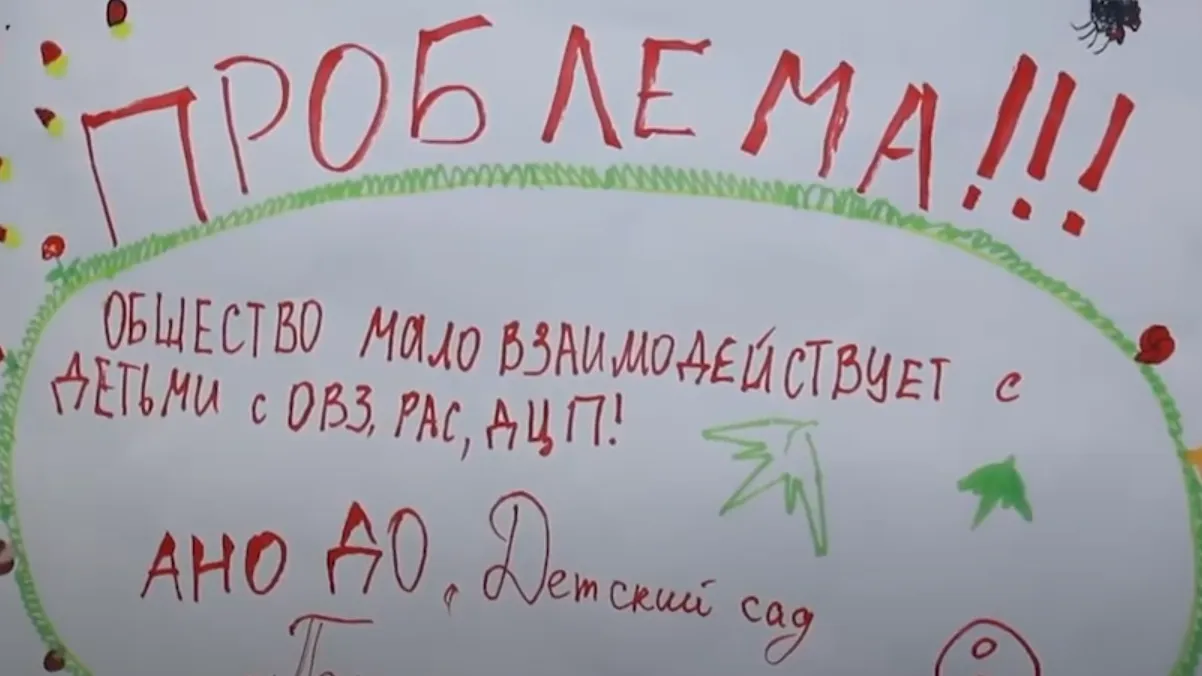 ПРОБЛЕМА!!!
ОБЩЕСТВО МАЛО ВЗАИМОДЕЙСТВУЕТ С
ДЕТЬМИ С ОВЗ, РАС, ДЦП!
АНО ДО, Детский сад